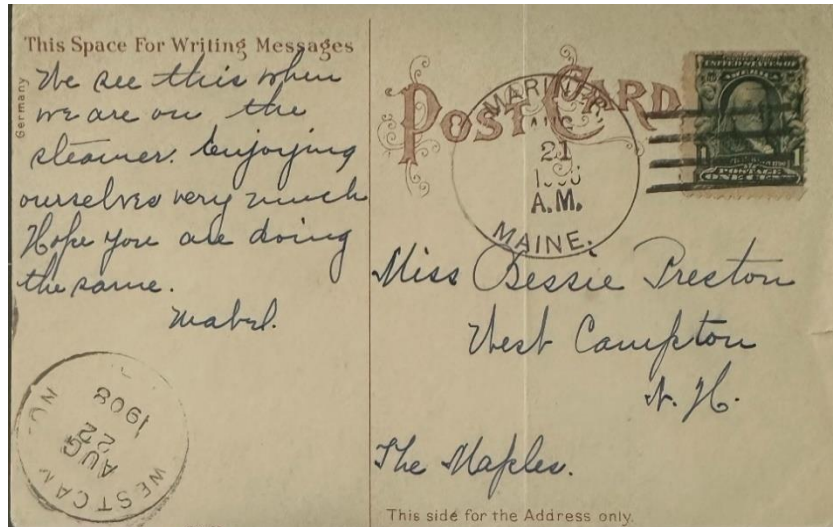 This Space For Writing Messages
Germany
We see this when
we are on the
steamer. Enjoying
ourselves very much
Hope you are doing
the same.
Mabel.
POST CARD
MARINER
AUG
21
A.M.
MAINE.
UNITED STATES OF
AMERICA
1 1
POSTAGE
ONE CENT
Miss Bessie Preston
West Campton
N. H.
The Maples.
WEST CAM ON
AUG
22
1908
This side for the Address only.